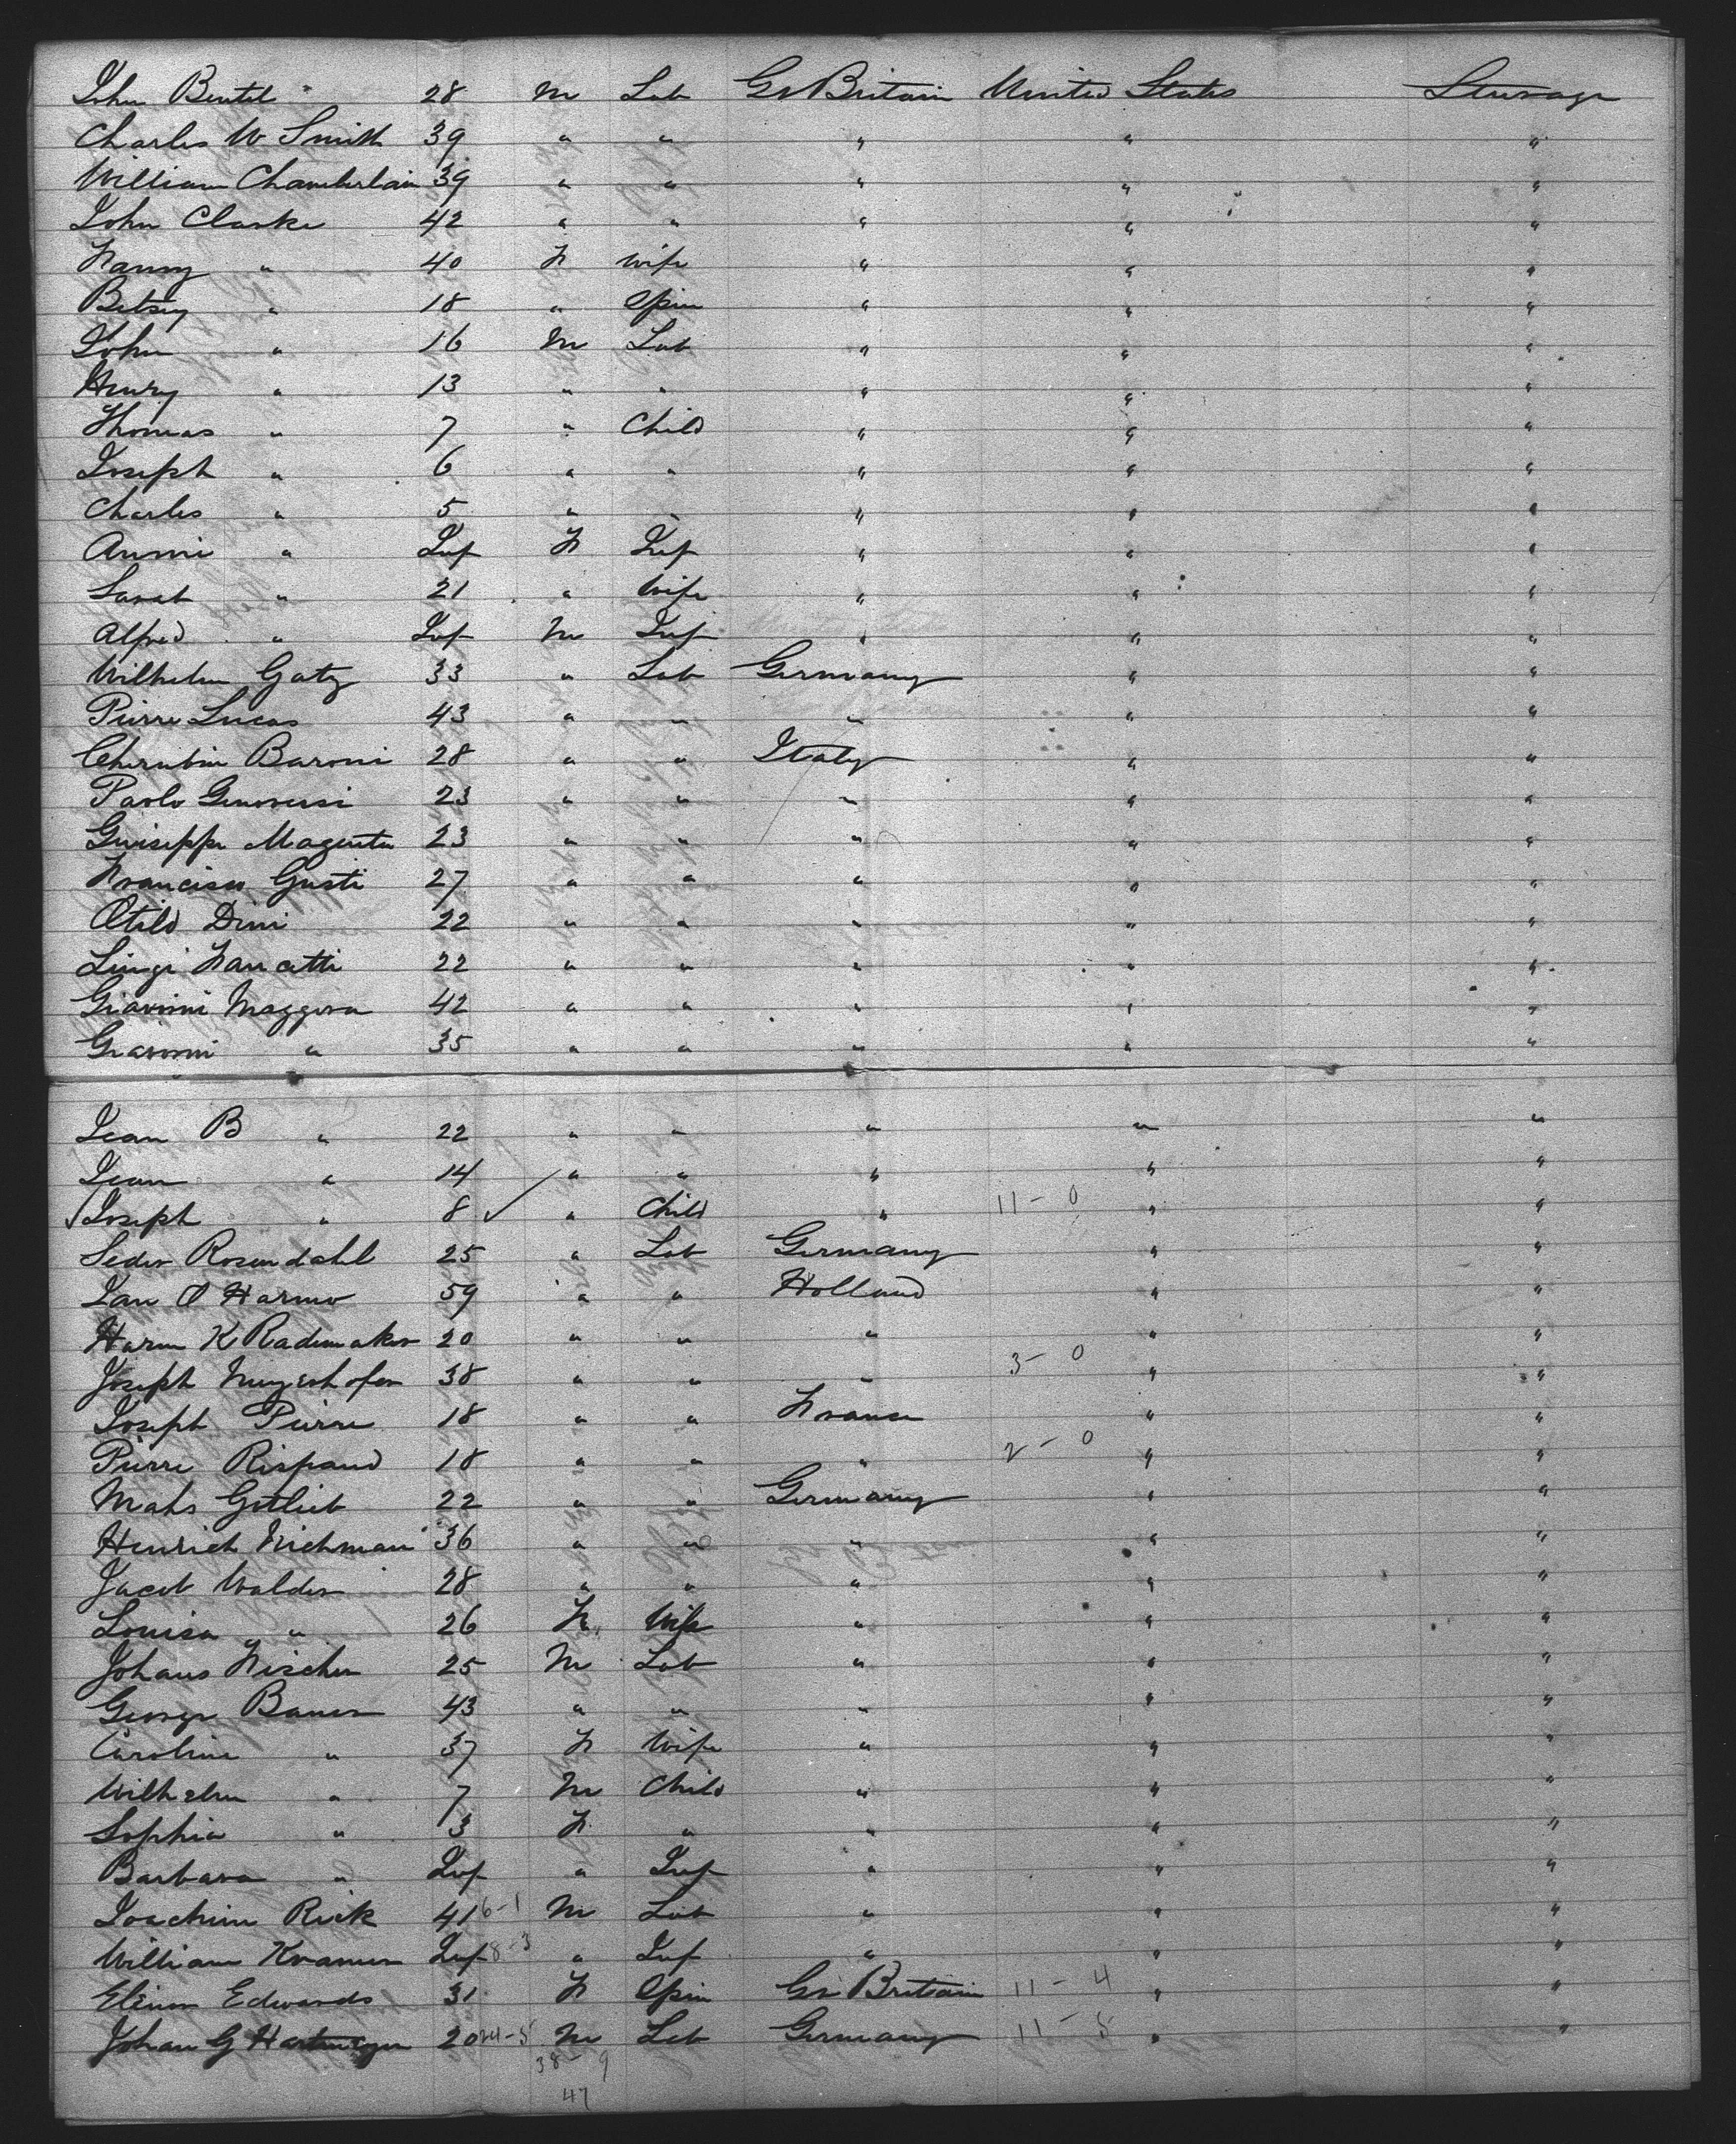 John Bentel 28 M Lab Gr Britain United States Steerage
Charles W Smith 39 " " " " "
William Chamberlain 39 " " " " "
John Clarke 42 " " " " "
Fanny " 40 F Wife " " "
Betsey " 18 " Spin " " "
John " 16 M Lab " " "
Henry " 13 " " " " "
Thomas " 7 " Child " " "
Joseph " 6 " " " " "
Charles " 5 " " " " "
Annie " Inf F Inf " " "
Sarah " 21 " Wife " " "
Alfred " Inf M Inf " " "
Wilhelm Gatz 33 " Lab Germany " "
Pierre Lucas 43 " " " " "
Cherubin Baroni 28 " " Italy " "
Paolo Genoversi 23 " " " " "
Guiseppe Magenta 23 " " " " "
Francisco Gusti 27 " " " " "
Otild Dini 22 " " " " "
Luigi Fancetti 22 " " " " "
Giavoni Maggora 42 " " " " "
Giavoni " 35 " " " " "
Jean B " 22 " " " " "
Jean " 14 " " " " "
Joseph " 8 " Child " 11 - 0 " "
Seder Rosendahl 25 " Lab Germany " "
Jan O Harmo 59 " " Holland " "
Harm K Rademaker 20 " " " " "
Joseph 38 " " " 3 - 0 " "
Joseph Pierre 18 " " France " "
Pierre Rispaud 18 " " " 2 - 0 " "
Mahs Gotlieb 22 " " Germany " "
Henrich Nichman 36 " " " " "
Jacob Walder 28 " " " " "
Louisa " 26 F Wife " " "
Johans Fischer 25 M Lab " " "
George Bauer 43 " " " " "
Caroline " 37 F Wife " " "
Wilhelm " 7 M Child " " "
Sophia " 3 F " " " "
Barbara " Inf " Inf " " "
Joachim Rick 41 6-1 M Lab " " "
William Kramer Inf 8-3 " Inf " " "
Elinor Edwards 31 F Spin Gr Britain 11 - 4 " "
Johan G Hartmeyer 20 24-5 M Lab Germany 11 - 5 " "
38 - 9
47